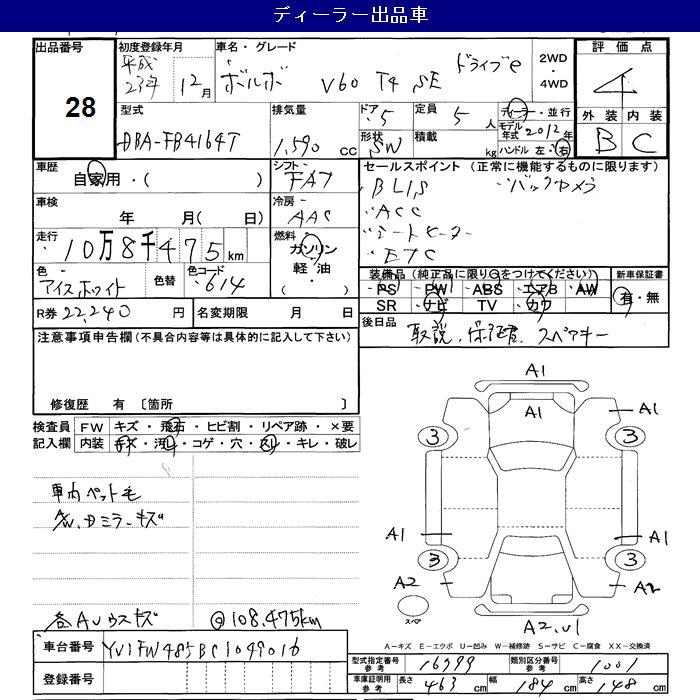 ディーラー出品車
出品番号 28
初度登録年月 平成 23年 12月
車名・グレード ボルボ V60 T4 SE ドライブe
2WD・4WD
評価点 4
外装 B 内装 C
型式 DBA-FB4164T
排気量 1,590 CC
ドア 5 定員 5 人
形状 SW 積載 kg
ディーラー・並行
モデル年式 2012年
ハンドル 左・右
車歴 自家用・( )
シフト FA7
セールスポイント (正常に機能するものに限ります)
・BLIS ・バックカメラ
・ACC
・シートヒーター
・ETC
車検 年 月( 日)
冷房 AAC
走行 10万8千475km
燃料 ガソリン・軽油・( )
色 アイスホワイト 色替 色コード 614
装備品 (純正品に限り○をつけてください)
PS PW ABS エアB AW
SR ナビ TV カワ
新車保証書 有・無
R券 22,240 円
名変期限 月 日
後日品 取説、保証書、スペアキー
注意事項申告欄 (不具合内容等は具体的に記入して下さい)
修復歴 有 〔箇所 〕
検査員記入欄
FW キズ・飛石・ヒビ割・リペア跡・×要
内装 キズ・汚れ・コゲ・穴・スレ・キレ・破レ
車内ペット毛
各AWウスキズ @108,475km
A1
A1
A1
3 3
A1 A1
3 3
A2 A2
スペア
A2,U1
A-キズ E-エクボ U-凹み W-補修跡 S-サビ C-腐食 XX-交換済
車台番号 YV1FW485BC1049016
登録番号
型式指定番号 参考 16999 類別区分番号 参考 1001
車庫証明用 参考 長さ 463 cm 幅 184 cm 高さ 148 cm